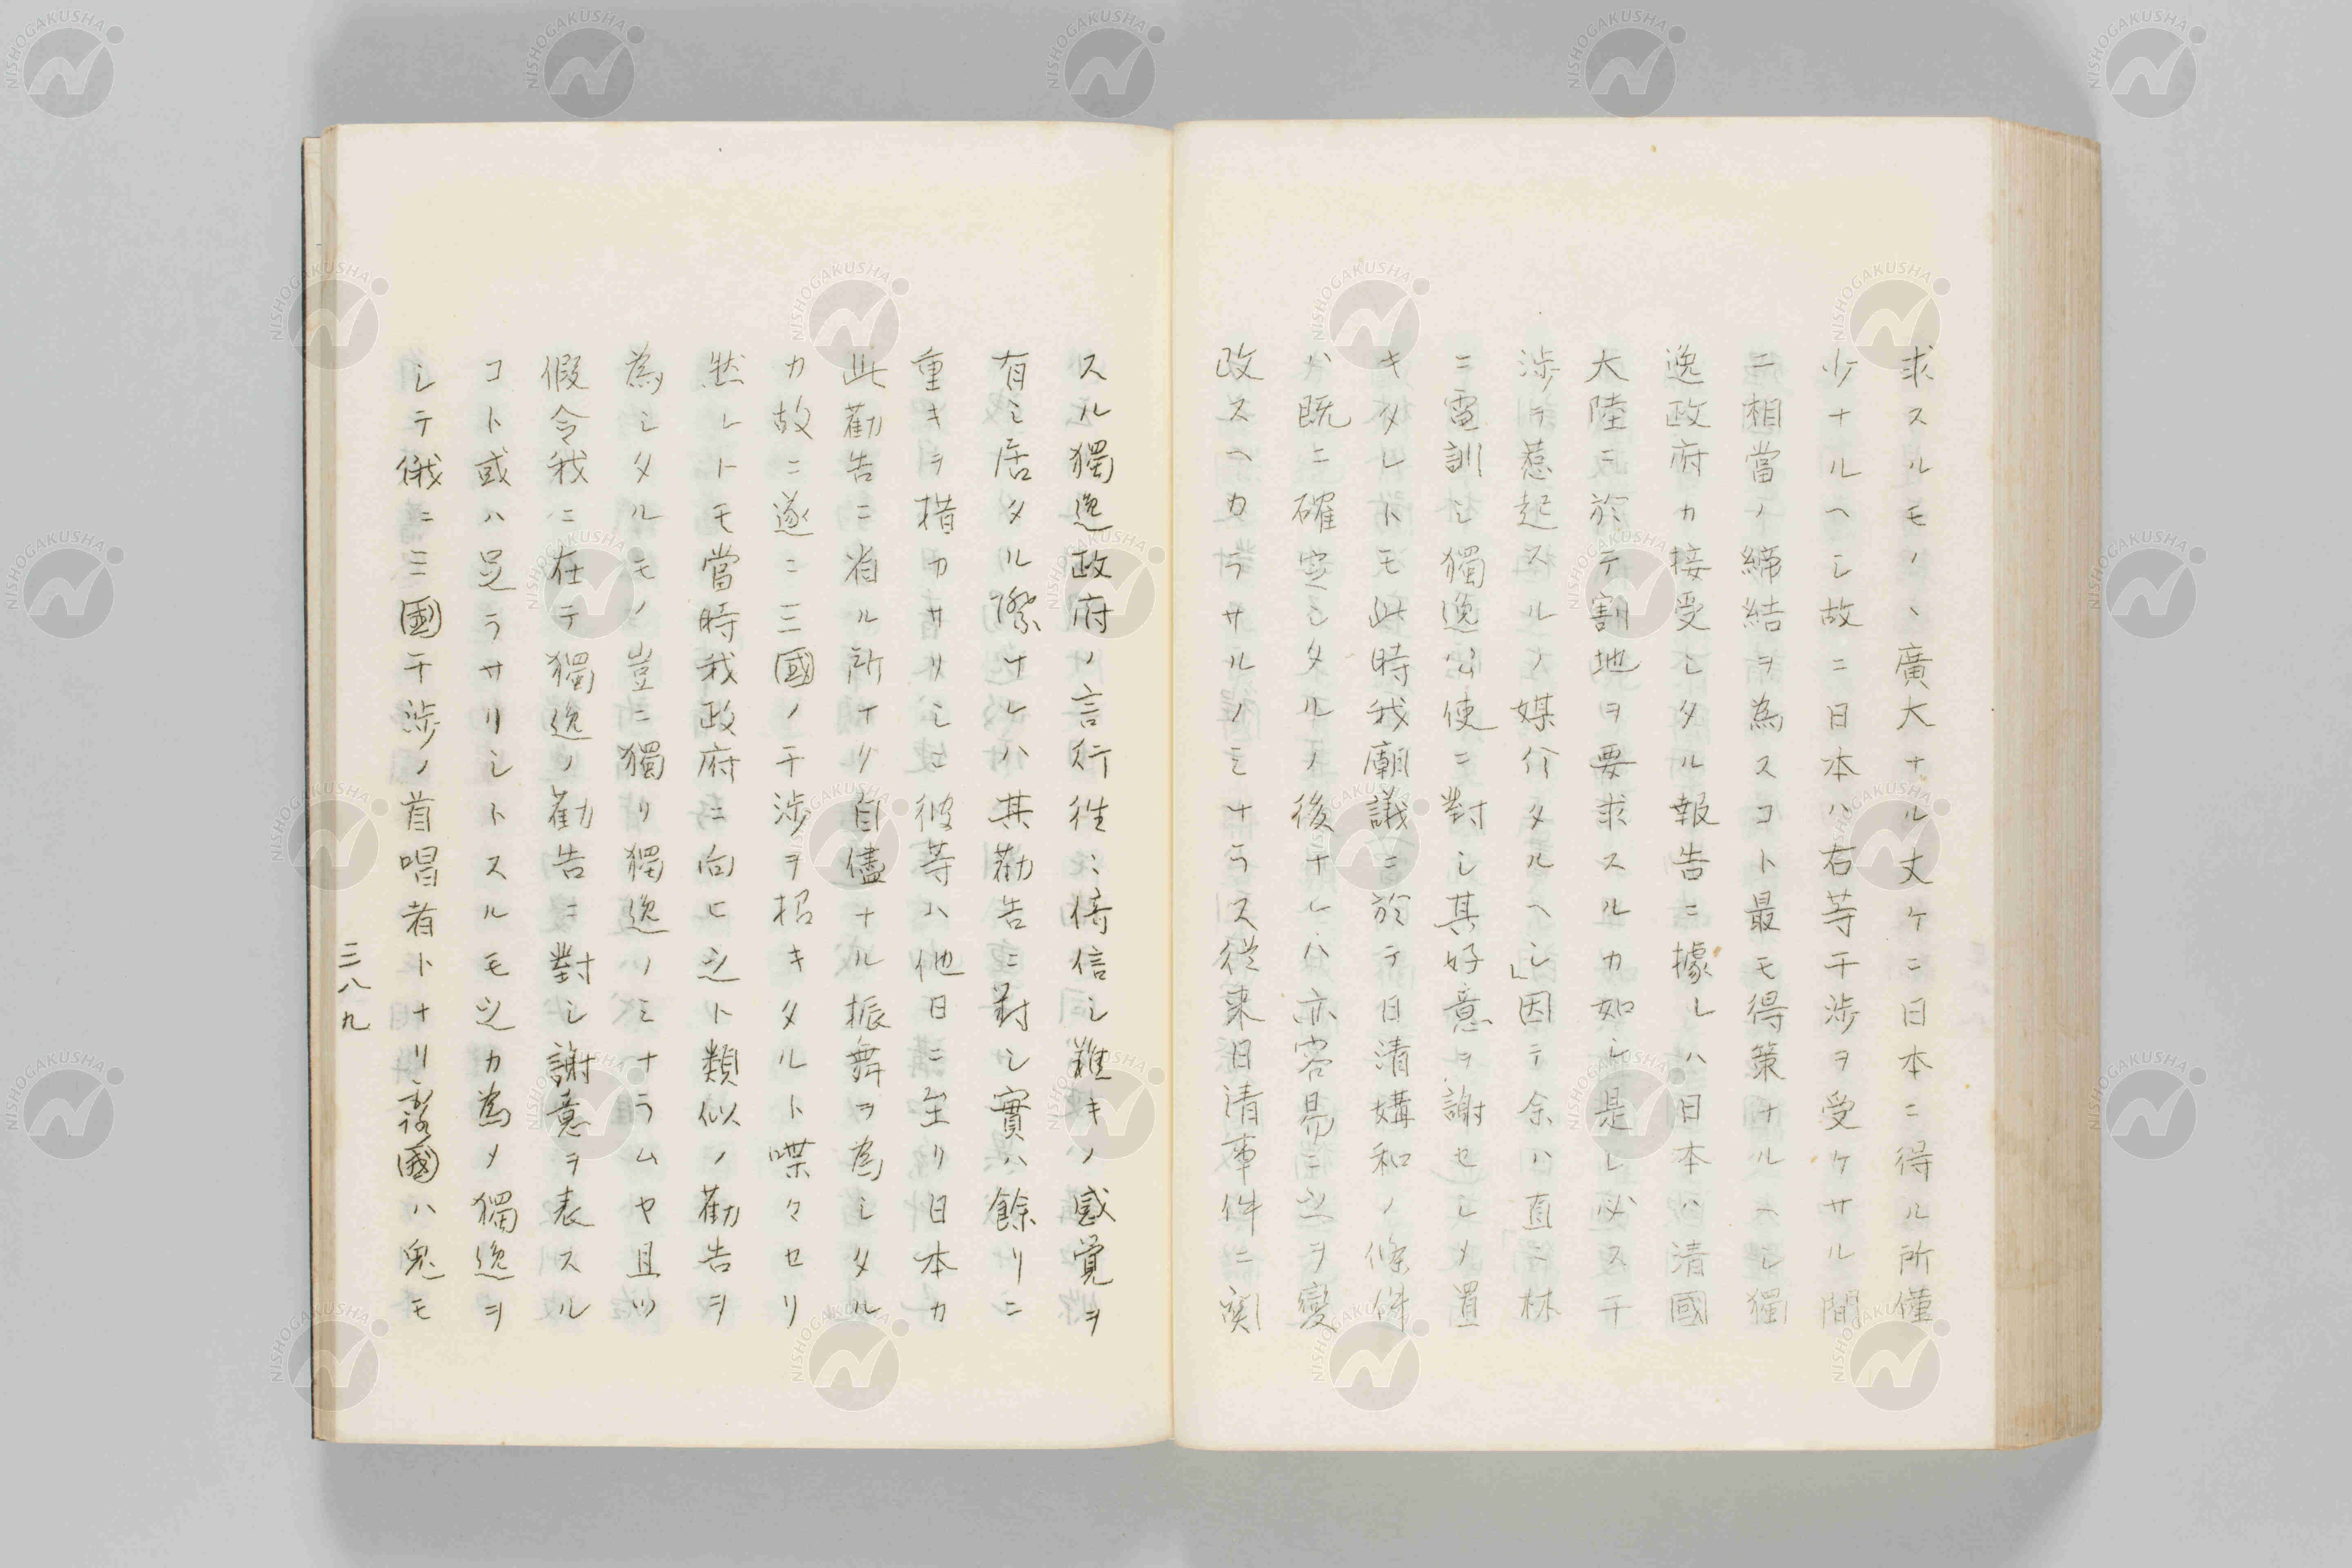 求スルモノヽ廣大ナル丈ケニ日本ニ得ル所僅
少ナルヘシ故ニ日本ハ右等干渉ヲ受ケサル間
ニ相當ノ締結ヲ為スコト最モ得策ナルヘシ獨
逸政府カ接受シタル報告ニ據レハ日本ハ清國
大陸ニ於テ割地ヲ要求スルカ如シ是レ必ス干
渉ヲ惹起スルノ媒介タルヘシ」因テ余ハ直ニ林
ニ電訓シ獨逸公使ニ對シ其好意ヲ謝セシメ置
キタレトモ此時我廟議ニ於テ日清媾和ノ條件
ハ既ニ確定シタルノ後ナレハ亦容易ニ之ヲ變
改スヘカラサルノミナラス従来日清事件ニ関
スル獨逸政府ノ言行往々倚信シ難キノ感覚ヲ
有シ居タル際ナレハ其勸告ニ對シ實ハ餘リニ
重キヲ措カサリシニ彼等ハ他日ニ至リ日本カ
此勸告ニ省ル所ナク自儘ナル振舞ヲ為シタル
カ故ニ遂ニ三國ノ干渉ヲ招キタルト喋々セリ
然レトモ當時我政府ニ向ヒ之ト類似ノ勸告ヲ
為シタルモノ豈ニ獨リ獨逸ノミナラムヤ且ツ
假令我ニ在テ獨逸ノ勸告ニ對シ謝意ヲ表スル
コト或ハ足ラサリシトスルモ之カ為メ獨逸ヲ
シテ俄ニ三國干渉ノ首唱者トナリ露國ハ鬼モ
三八九
NISHOGAKUSHA